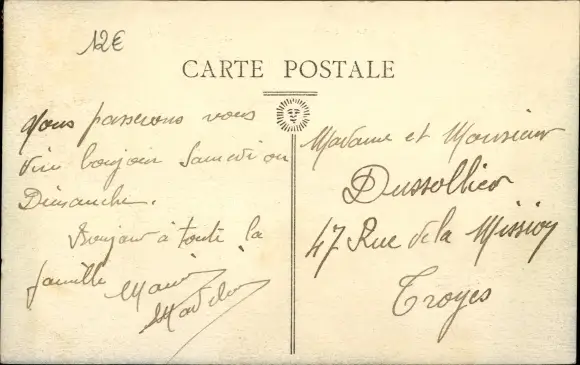 12€
CARTE POSTALE
Nous passerons vous
dire bonjour Samedi ou
Dimanche.
Bonjour à toute la
famille
Madame et Monsieur
Dussollier
47 Rue de la Mission
Troyes